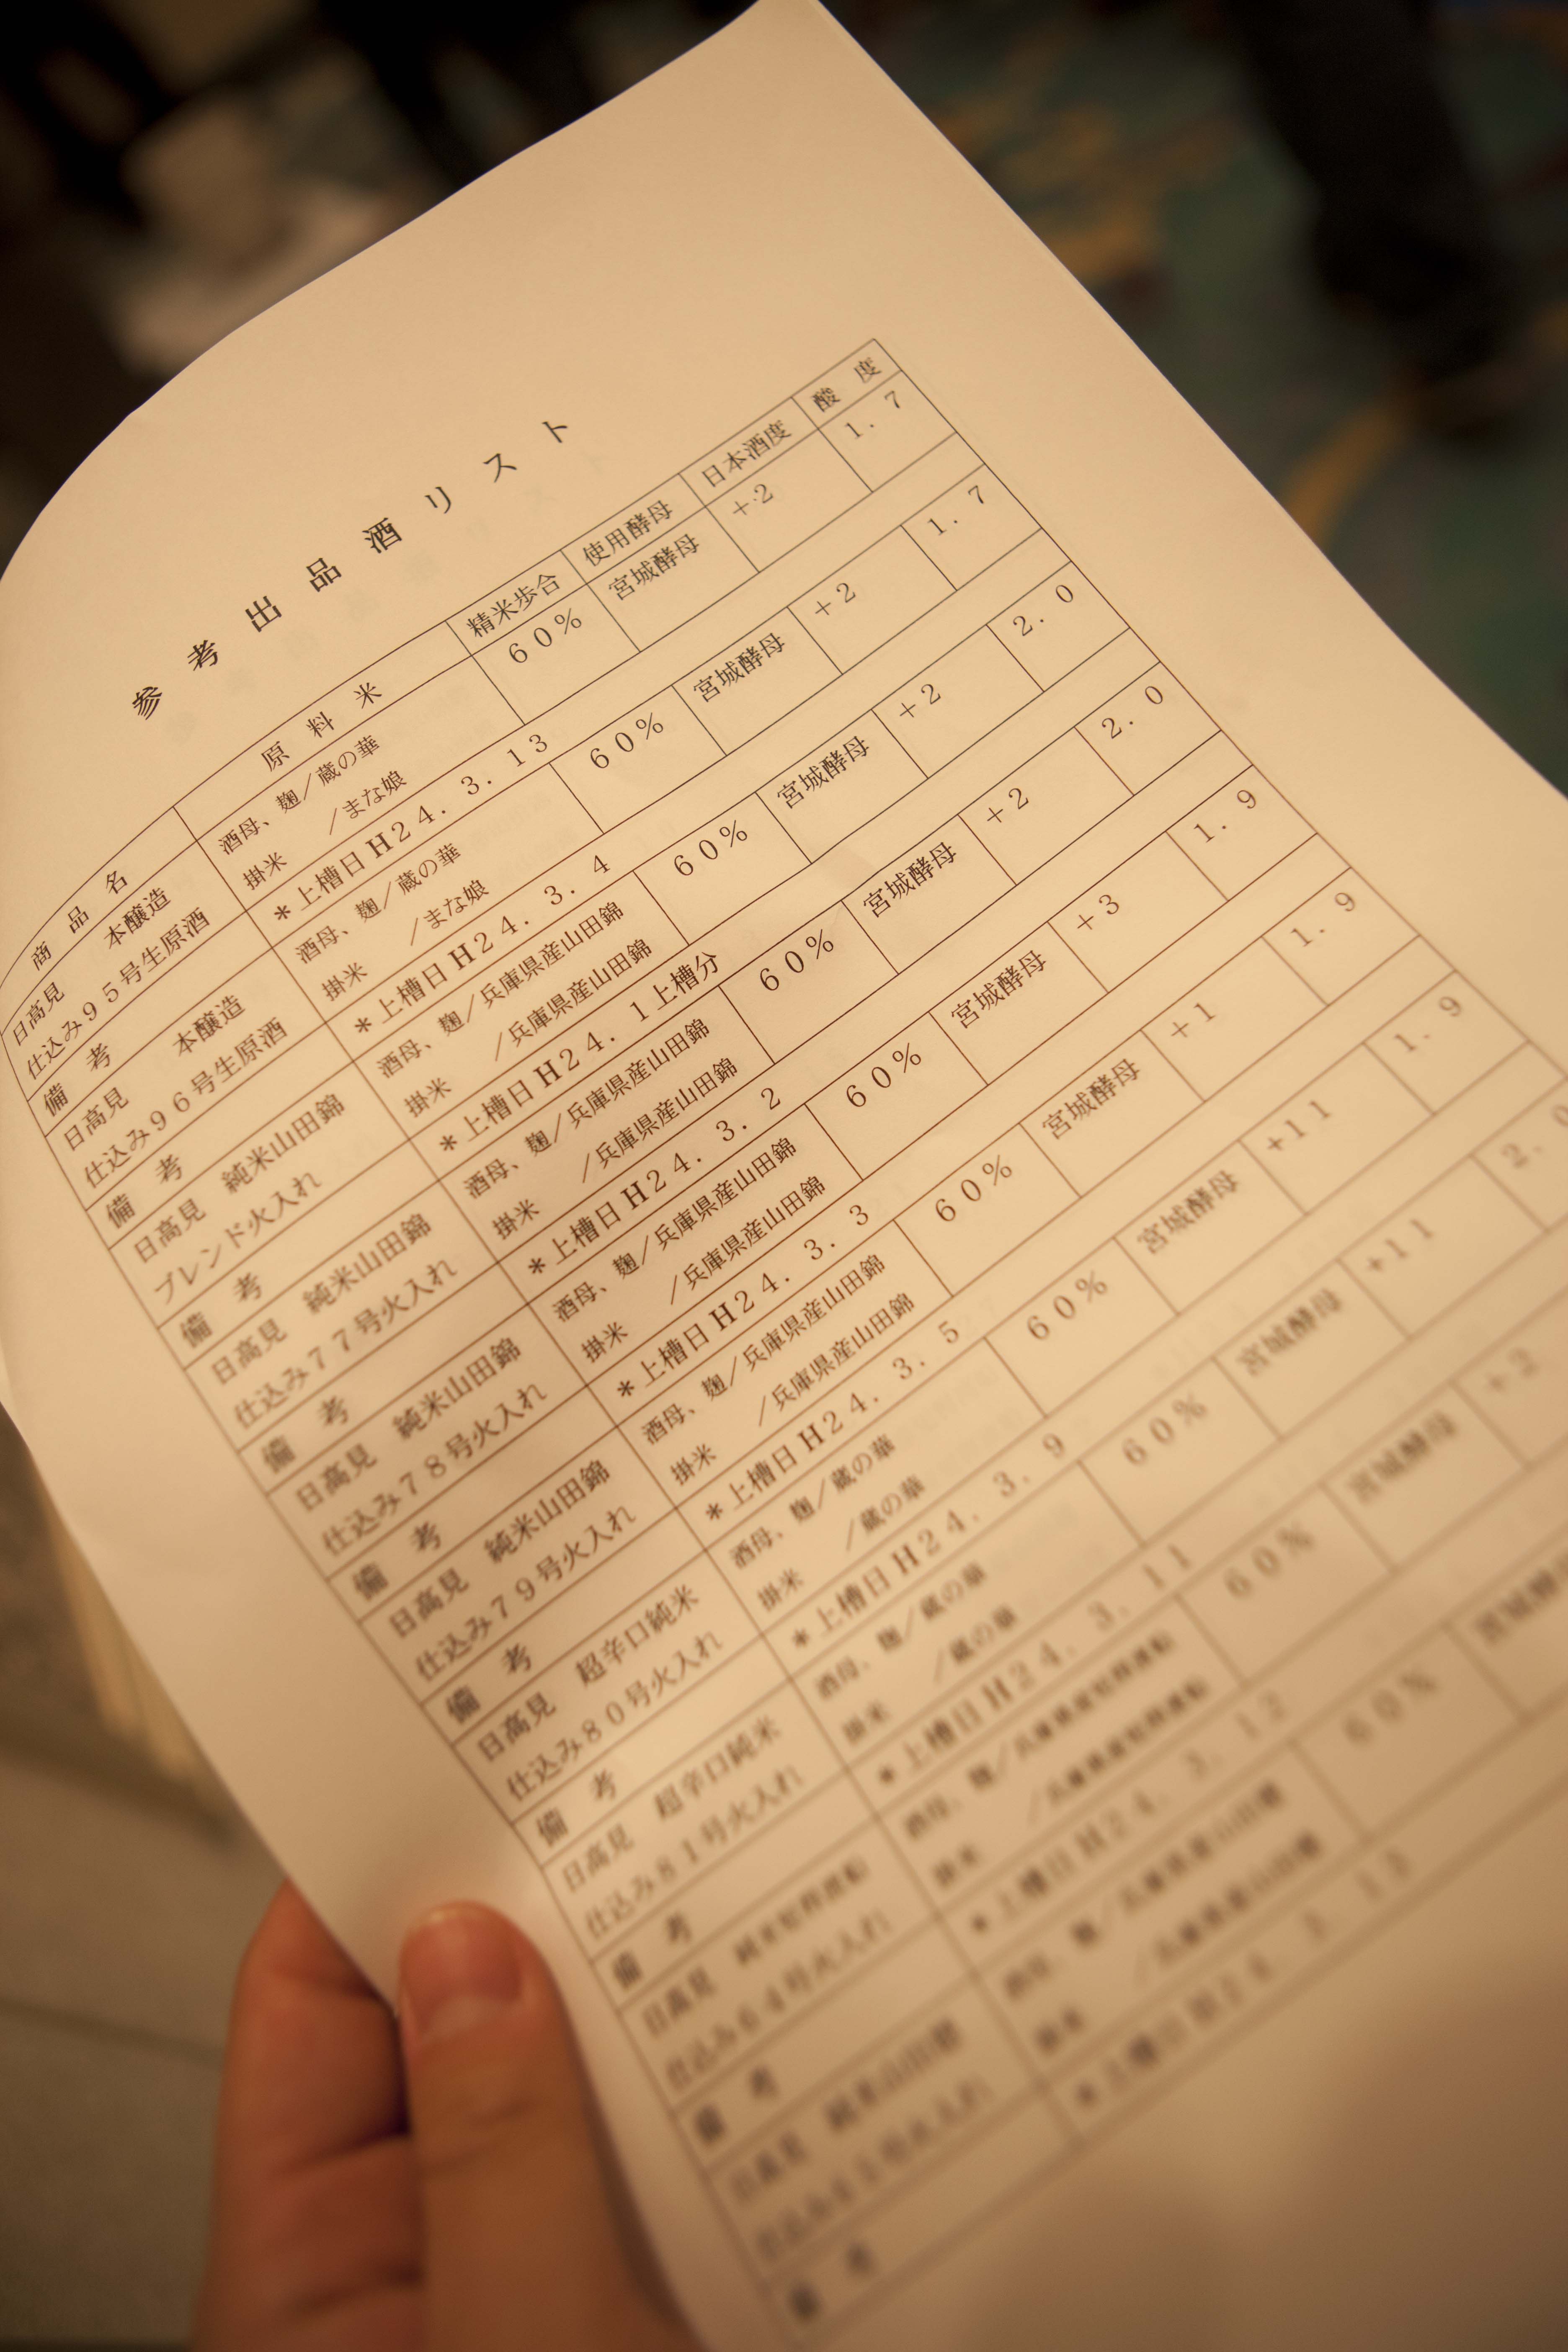 参考出品酒リスト
商品名 原料米 精米歩合 使用酵母 日本酒度 酸度
日高見 本醸造 酒母、麹/蔵の華 60% 宮城酵母 +2 1.7
仕込み95号生原酒 掛米 /まな娘
備考 *上槽日H24.3.13
日高見 本醸造 酒母、麹/蔵の華 60% 宮城酵母 +2 1.7
仕込み96号生原酒 掛米 /まな娘
備考 *上槽日H24.3.4
日高見 純米山田錦 酒母、麹/兵庫県産山田錦 60% 宮城酵母 +2 2.0
ブレンド火入れ 掛米 /兵庫県産山田錦
備考 *上槽日H24.1上槽分
日高見 純米山田錦 酒母、麹/兵庫県産山田錦 60% 宮城酵母 +2 2.0
仕込み77号火入れ 掛米 /兵庫県産山田錦
備考 *上槽日H24.3.2
日高見 純米山田錦 酒母、麹/兵庫県産山田錦 60% 宮城酵母 +3 1.9
仕込み78号火入れ 掛米 /兵庫県産山田錦
備考 *上槽日H24.3.3
日高見 純米山田錦 酒母、麹/兵庫県産山田錦 60% 宮城酵母 +1 1.9
仕込み79号火入れ 掛米 /兵庫県産山田錦
備考 *上槽日H24.3.5
日高見 超辛口純米 酒母、麹/蔵の華 60% 宮城酵母 +11 1.9
仕込み80号火入れ 掛米 /蔵の華
備考 *上槽日H24.3.9
日高見 超辛口純米 酒母、麹/蔵の華 60% 宮城酵母 +11 2.0
仕込み81号火入れ 掛米 /蔵の華
備考 *上槽日H24.3.11
日高見 酒母、麹/兵庫県産 60% 宮城酵母 +2
仕込み64号火入れ 掛米 /兵庫県産
備考 *上槽日H24.3.12
日高見 純米山田錦 酒母、麹/兵庫県産山田錦 60% 宮城酵母
掛米 /兵庫県産山田錦
備考 *上槽日H24.3.13